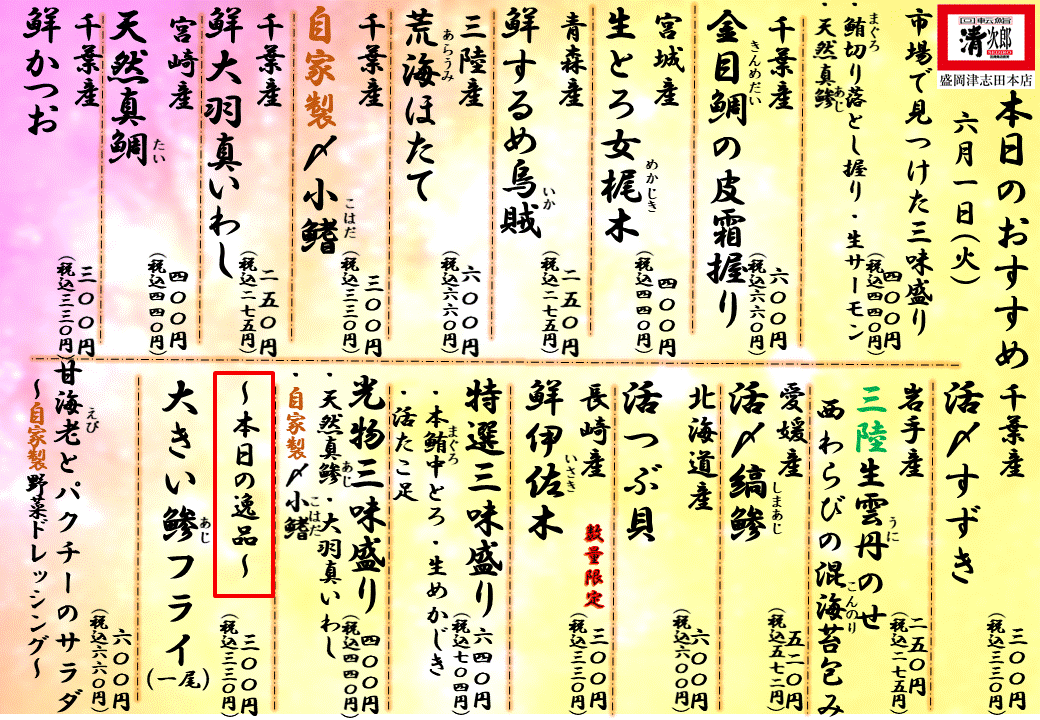 回転鮨
清次郎
SEIJIRO
盛岡津志田本店
本日のおすすめ
六月一日(火)
市場で見つけた三味盛り
まぐろ
・鮪切り落とし握り・生サーモン
あじ
・天然真鯵
四〇〇円
(税込四四〇円)
千葉産
きんめだい
金目鯛の皮霜握り
六〇〇円
(税込六六〇円)
宮城産
めかじき
生とろ女梶木
四〇〇円
(税込四四〇円)
青森産
いか
鮮するめ烏賊
二五〇円
(税込二七五円)
三陸産
あらうみ
荒海ほたて
六〇〇円
(税込六六〇円)
千葉産
こはだ
自家製〆小鰭
三〇〇円
(税込三三〇円)
千葉産
鮮大羽真いわし
二五〇円
(税込二七五円)
宮崎産
たい
天然真鯛
四〇〇円
(税込四四〇円)
千葉産
鮮かつお
三〇〇円
(税込三三〇円)
千葉産
活〆すずき
三〇〇円
(税込三三〇円)
岩手産
うに
三陸生雲丹のせ
こんのり
西わらびの混海苔包み
二五〇円
(税込二七五円)
愛媛産
しまあじ
活〆縞鯵
五二〇円
(税込五七二円)
北海道産
活つぶ貝
六〇〇円
(税込六六〇円)
長崎産
数量限定
いさき
鮮伊佐木
三〇〇円
(税込三三〇円)
特選三味盛り
まぐろ
・本鮪中とろ・生めかじき
・活たこ足
六四〇円
(税込七〇四円)
光物三味盛り
あじ
・天然真鯵・大羽真いわし
こはだ
・自家製〆小鰭
四〇〇円
(税込四四〇円)
～本日の逸品～
あじ
大きい鯵フライ(一尾)
三〇〇円
(税込三三〇円)
えび
甘海老とパクチーのサラダ
～自家製野菜ドレッシング～
六〇〇円
(税込六六〇円)